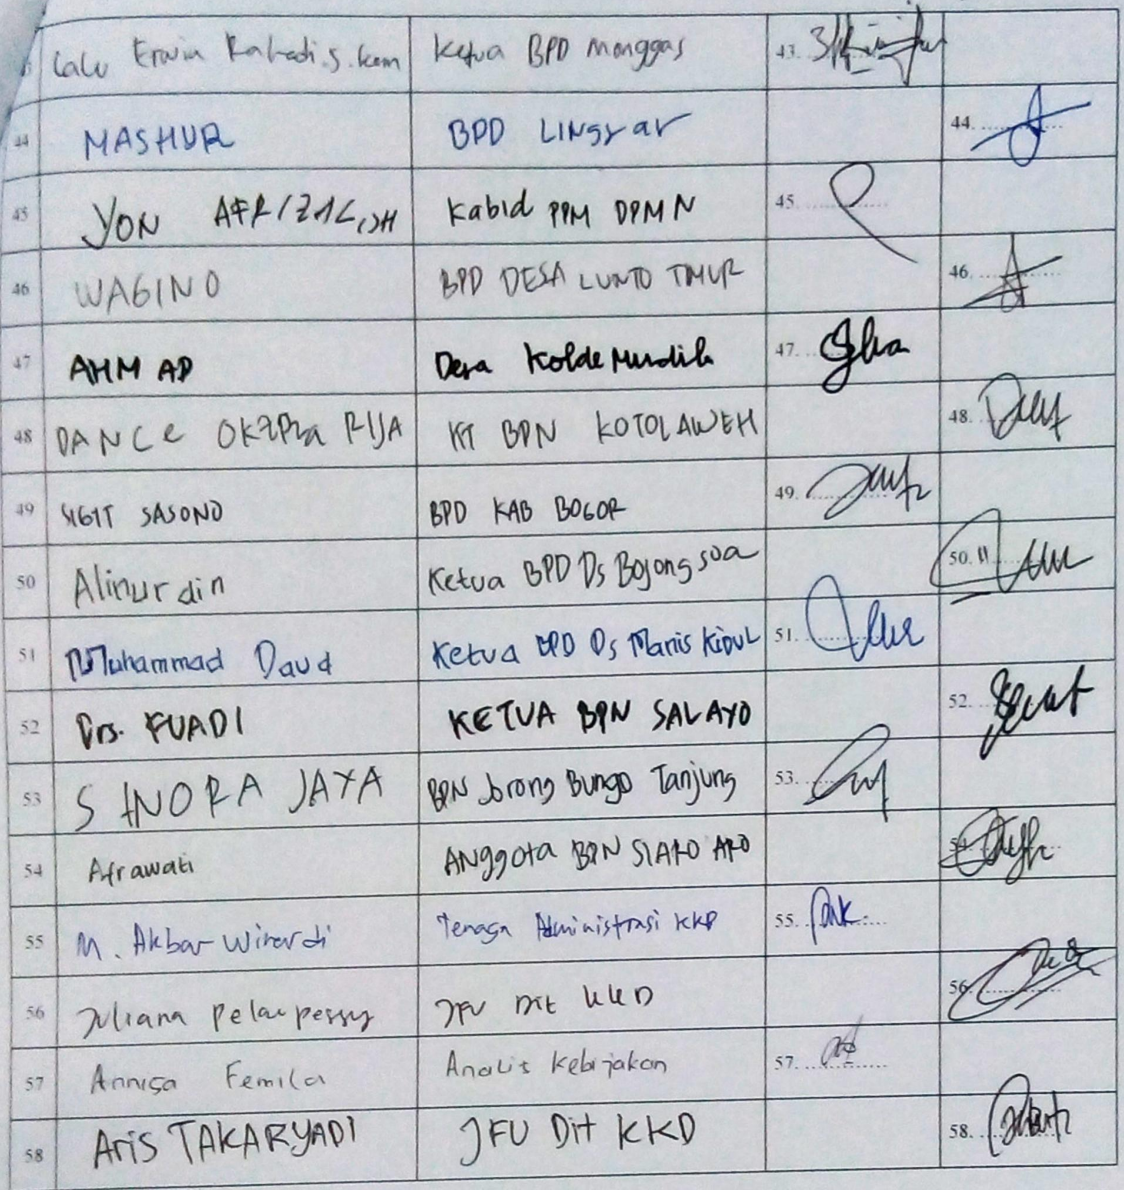 Lalu Erwin Rahadi.S.kom Ketua BPD Monggas 43.
44 MASHUR BPD LINGSAR 44.
45 YON AFRIZAL,SH Kabid PPM DPMN 45.
46 WAGINO BPD DESA LUNTO TIMUR 46.
47 AHMAD Desa Kolde Mudik 47.
48 DANCE OKTPRA RIJA KT BPN KOTOLAWEH 48.
49 SIGIT SASONO BPD KAB BOGOR 49.
50 Alinurdin Ketua BPD Ds Bojong soa 50.
51 Muhammad Daud Ketua BPD Ds Manis Kidul 51.
52 Drs. FUADI KETUA BPN SALAYO 52.
53 SINORA JAYA BPN Jorong Bungo Tanjung 53.
54 Afrawati ANggota BPN SIARO ARO 54.
55 M. Akbar Winardi Tenaga Administrasi KKD 55.
56 Juliana Pelaupessy JFU Dit KKD 56.
57 Annisa Femila Analis Kebijakan 57.
58 Aris TAKARYADI JFU Dit KKD 58.